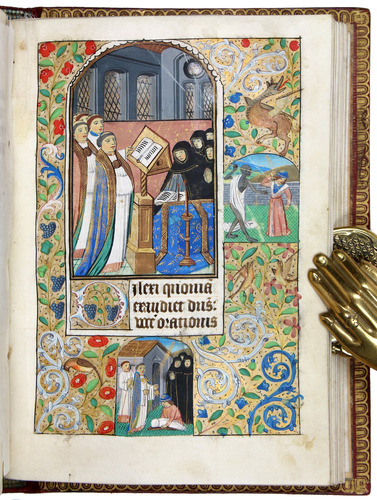 Dilexi quoniā
exaudiet dn̄s:
vocē orationis